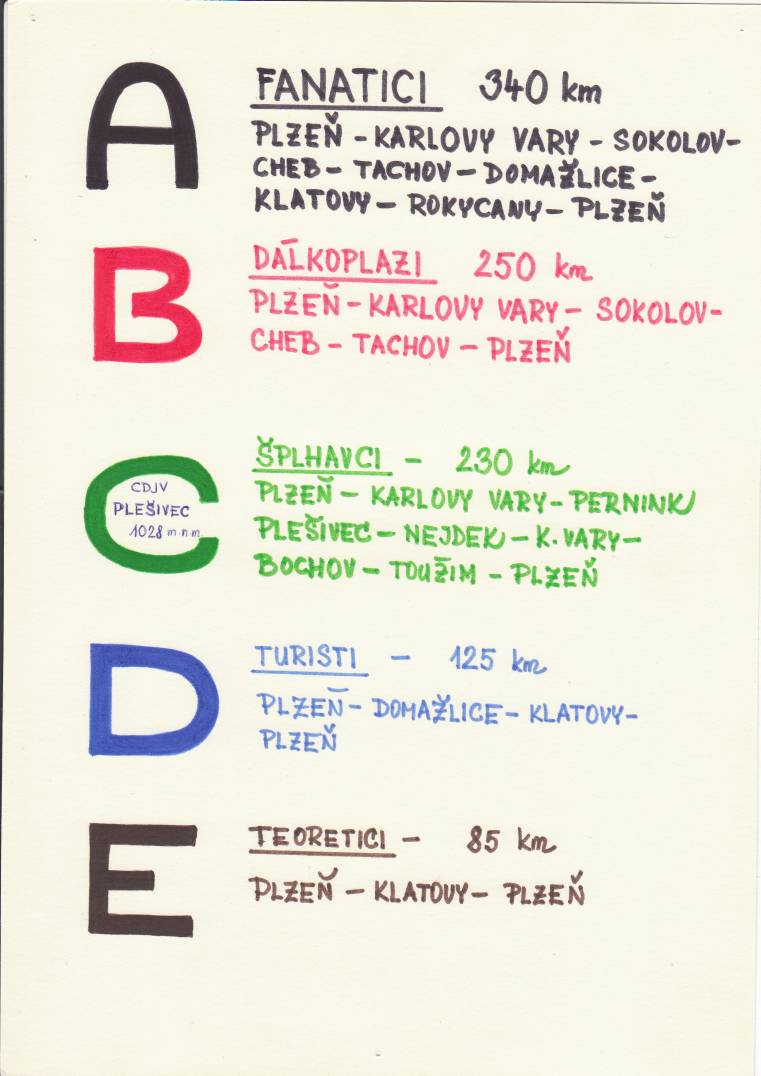 A
FANATICI 340 km
PLZEŇ - KARLOVY VARY - SOKOLOV-
CHEB - TACHOV - DOMAŽLICE -
KLATOVY - ROKYCANY - PLZEŇ
B
DÁLKOPLAZI 250 km
PLZEŇ - KARLOVY VARY - SOKOLOV-
CHEB - TACHOV - PLZEŇ
C
CDJV
PLEŠIVEC
1028 m.n.m.
ŠPLHAVCI - 230 km
PLZEŇ - KARLOVY VARY - PERNINK
PLEŠIVEC - NEJDEK - K. VARY -
BOCHOV - TOUŽIM - PLZEŇ
D
TURISTI - 125 km
PLZEŇ - DOMAŽLICE - KLATOVY -
PLZEŇ
E
TEORETICI - 85 km
PLZEŇ - KLATOVY - PLZEŇ